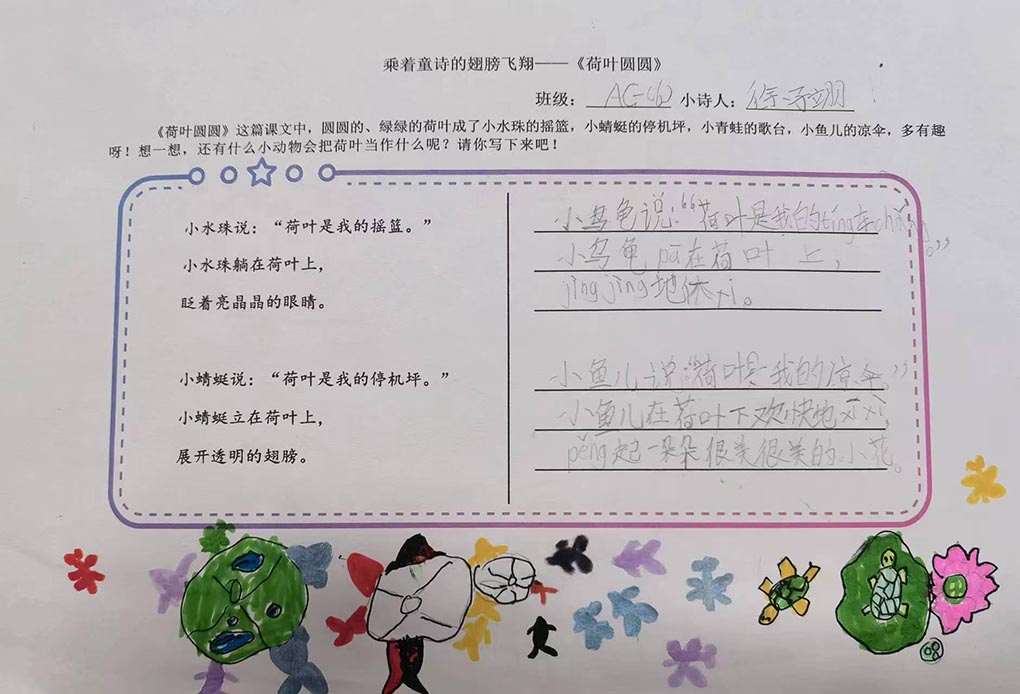 乘着童诗的翅膀飞翔——《荷叶圆圆》
班级： AC-(6) 小诗人：
《荷叶圆圆》这篇课文中，圆圆的、绿绿的荷叶成了小水珠的摇篮，小蜻蜓的停机坪，小青蛙的歌台，小鱼儿的凉伞，多有趣
呀！想一想，还有什么小动物会把荷叶当作什么呢？请你写下来吧！
小水珠说：“荷叶是我的摇篮。”
小水珠躺在荷叶上，
眨着亮晶晶的眼睛。
小蜻蜓说：“荷叶是我的停机坪。”
小蜻蜓立在荷叶上，
展开透明的翅膀。
小乌龟说：“荷叶是我的tíng车chǎng。”
小乌龟pā在荷叶上，
jìng jìng地休xi。
小鱼儿说：“荷叶是我的凉伞。”
小鱼儿在荷叶下欢快地xī xì，
pěng起一朵朵很美很美的小花。